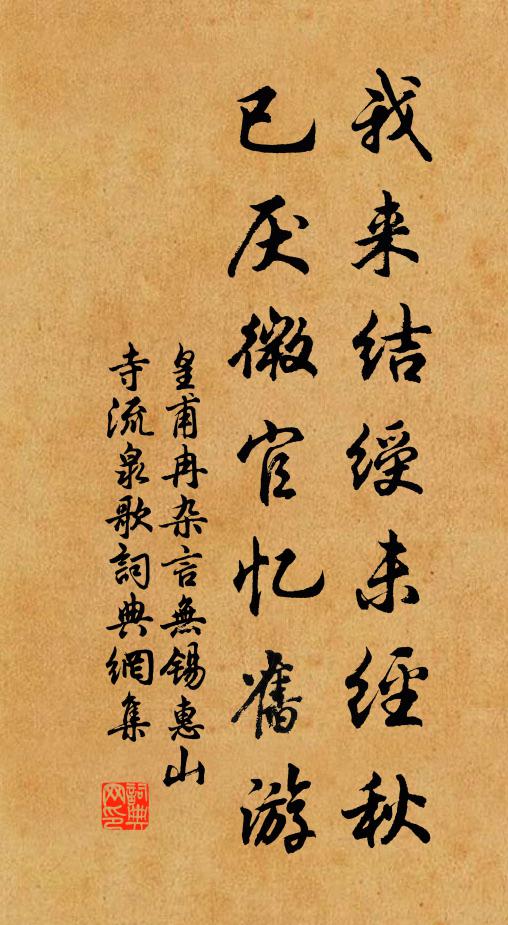 我来结绶未经秋
已厌微官忆旧游
皇甫冉杂言無锡惠山
寺流泉歌詞典網集
詞典网印